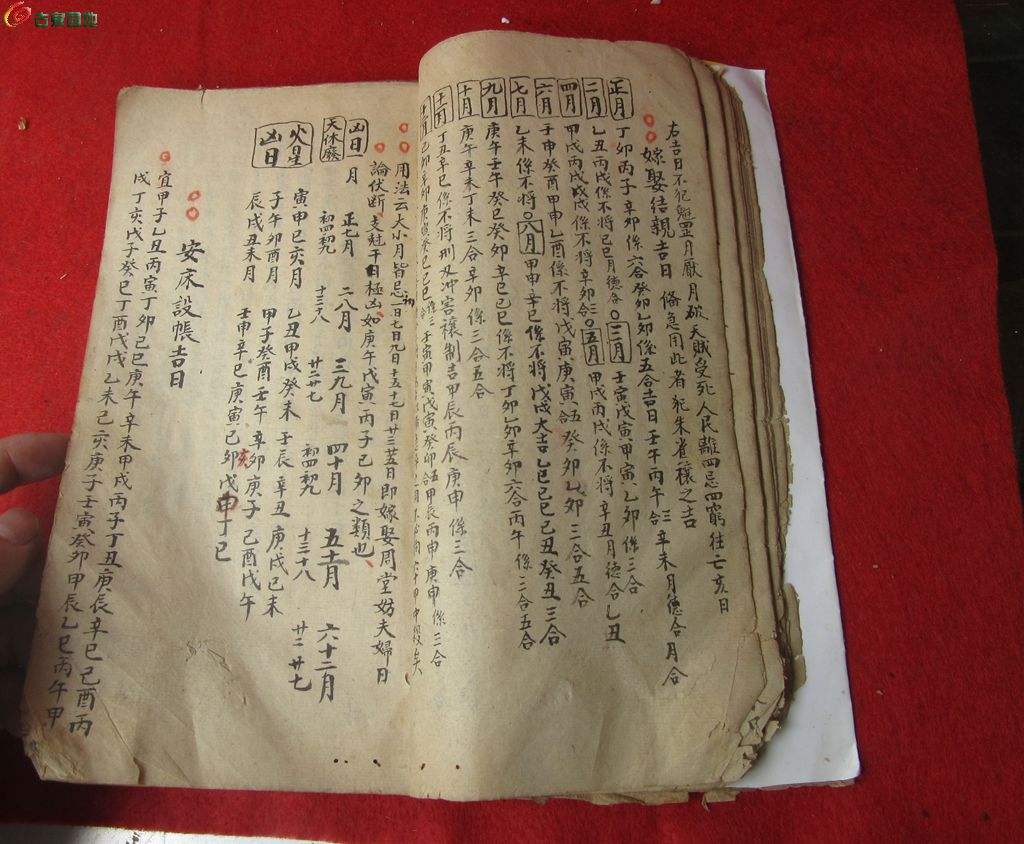 右吉日不犯魁罡月厭月破天賊受死人民離四忌四窮往亡亥日
嫁娶結親吉日 偹急用此者犯朱雀禳之吉
正月 丁卯丙子辛卯係六合癸卯乙卯係五合吉日壬午丙午三合辛未月德合月合
二月 乙丑丙戌係不將己巳月德合〇三月 壬寅戊寅甲寅乙卯係三合
四月 甲戌丙戌戊戌係不將辛卯合〇五月 甲戌丙戌係不將辛丑月德合乙丑
六月 壬申癸酉甲申乙酉係不將戊寅庚寅五合癸卯乙卯三合五合
七月 乙未係不將〇八月 甲申辛巳係不將戊戌大吉乙巳己巳己丑癸丑三合
九月 庚午壬午癸巳癸卯辛巳己巳係不將丁卯乙卯辛卯六合丙午係三合五合
十月 庚午辛未丁未三合辛卯係三合五合
丁丑辛巳係不將刑沖害禳制吉甲辰丙辰庚申係三合
用法云大小月皆忌初一日七日九日十五十七日廿三廿五日即嫁娶周堂妨夫婦日
論伏斷支尅干日極凶如庚午戊寅丙子己卯之類也
凶日一月
天休廢 正七月 二八月 三九月 四十月 五十一月 六十二月
初四初九 十三十八 廿二廿七 初四初九 十三十八 廿二廿七
火星凶日 寅申巳亥月 乙丑甲戌癸未壬辰辛丑庚戌己未
子午卯酉月 甲子癸酉壬午辛卯庚子己酉戊午
辰戌丑未月 壬申辛巳庚寅己亥戊申丁巳
安床設帳吉日
宜甲子乙丑丙寅丁卯己巳庚午辛未甲戌丙子丁丑庚辰辛巳己酉丙
戌丁亥戊子癸巳丁酉戊戌乙未己亥庚子壬寅癸卯甲辰乙巳丙午甲